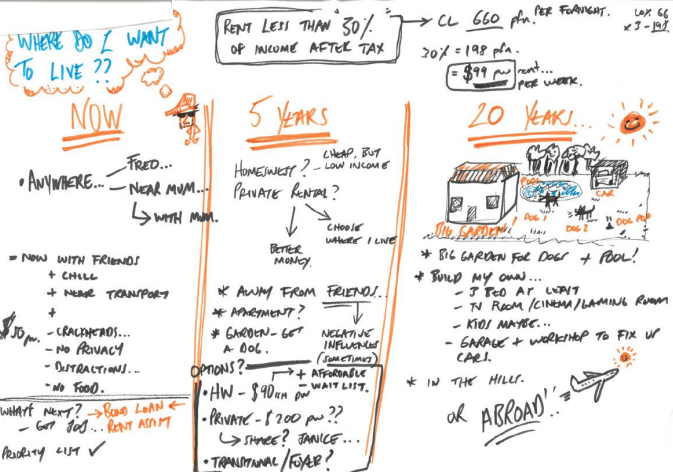 WHERE DO I WANT
TO LIVE??
RENT LESS THAN 30%
OF INCOME AFTER TAX
CL 660 pfn. PER FORNIGHT.
10% 66
x 3 - 198
30% = 198 pfn.
= $99 pw rent...
PER WEEK.
NOW
• ANYWHERE...
FRED...
NEAR MUM...
WITH MUM.
= NOW WITH FRIENDS
+ CHILL
+ NEAR TRANSPORT
+
$50 pw.
- CRACKHEADS...
- NO PRIVACY
- DISTRACTIONS...
- NO FOOD.
WHAT'S NEXT? → BOND LOAN ←
- GET JOB... RENT ASSIST
PRIORITY LIST ✓
5 YEARS
HOMESWEST? - CHEAP, BUT
LOW INCOME
PRIVATE RENTAL?
BETTER
MONEY.
CHOOSE
WHERE I LIVE
* AWAY FROM FRIENDS...
* APARTMENT?
* GARDEN - GET
A DOG.
NEGATIVE
INFLUENCES
(SOMETIMES)
OPTIONS?
+ AFFORDABLE
- WAIT LIST.
• HW - $90 pw
• PRIVATE - $200 pw??
SHARE? JANICE...
• TRANSITIONAL / FOYER?
20 YEARS...
POOL
CAR
DOG 1
DOG 2
DOG POO
BIG GARDEN!
* BIG GARDEN FOR DOGS + POOL!
* BUILD MY OWN...
- 3 BED AT LEAST
- TV ROOM / CINEMA / GAMING ROOM
- KIDS MAYBE...
- GARAGE + WORKSHOP TO FIX UP
CARS.
* IN THE HILLS.
OR ABROAD!!